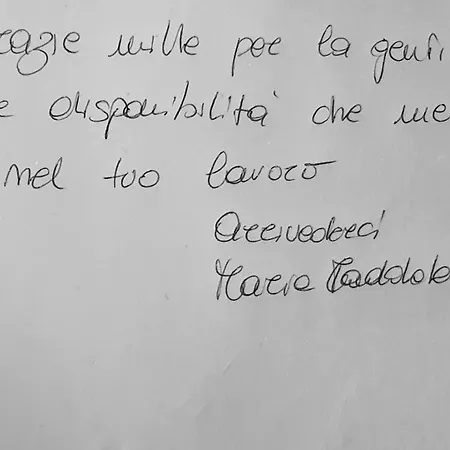 razie mille per la genti
e disponibilità che me
nel tuo lavoro
Arrivederci
Maria